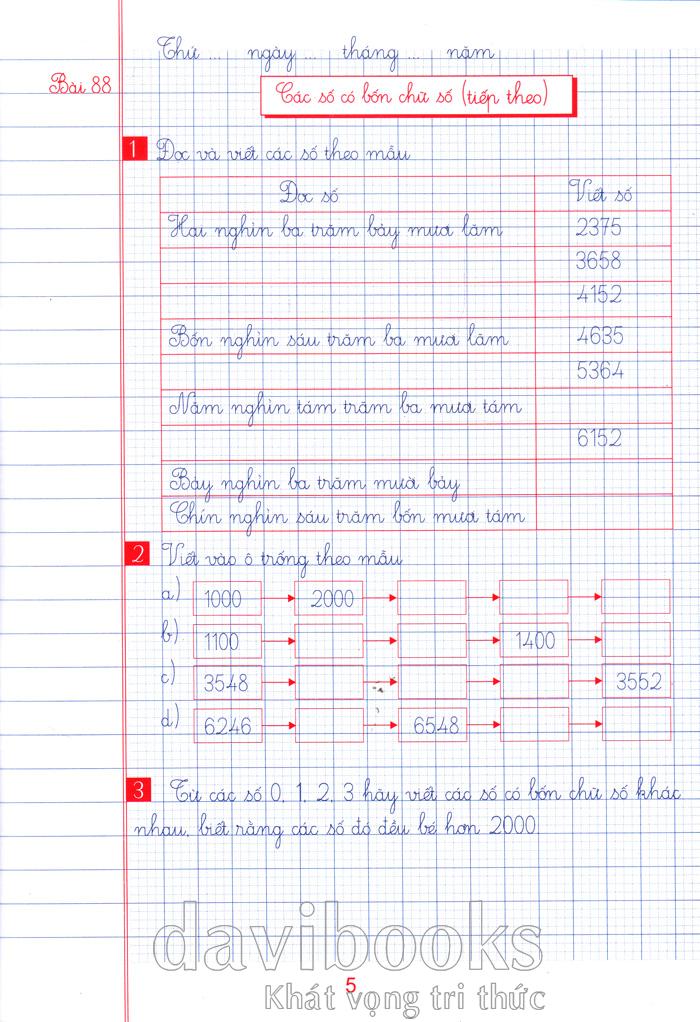 Thứ ... ngày ... tháng ... năm
Bài 88
Các số có bốn chữ số (tiếp theo)
1 Đọc và viết các số theo mẫu
Đọc số Viết số
Hai nghìn ba trăm bảy mươi lăm 2375
3658
4152
Bốn nghìn sáu trăm ba mươi lăm 4635
5364
Năm nghìn tám trăm ba mươi tám
6152
Bảy nghìn ba trăm mười bảy
Chín nghìn sáu trăm bốn mươi tám
2 Viết vào ô trống theo mẫu
a) 1000 2000
b) 1100 1400
c) 3548 3552
d) 6246 6548
3 Từ các số 0, 1, 2, 3 hãy viết các số có bốn chữ số khác
nhau, biết rằng các số đó đều bé hơn 2000
davibooks
5
Khát vọng tri thức